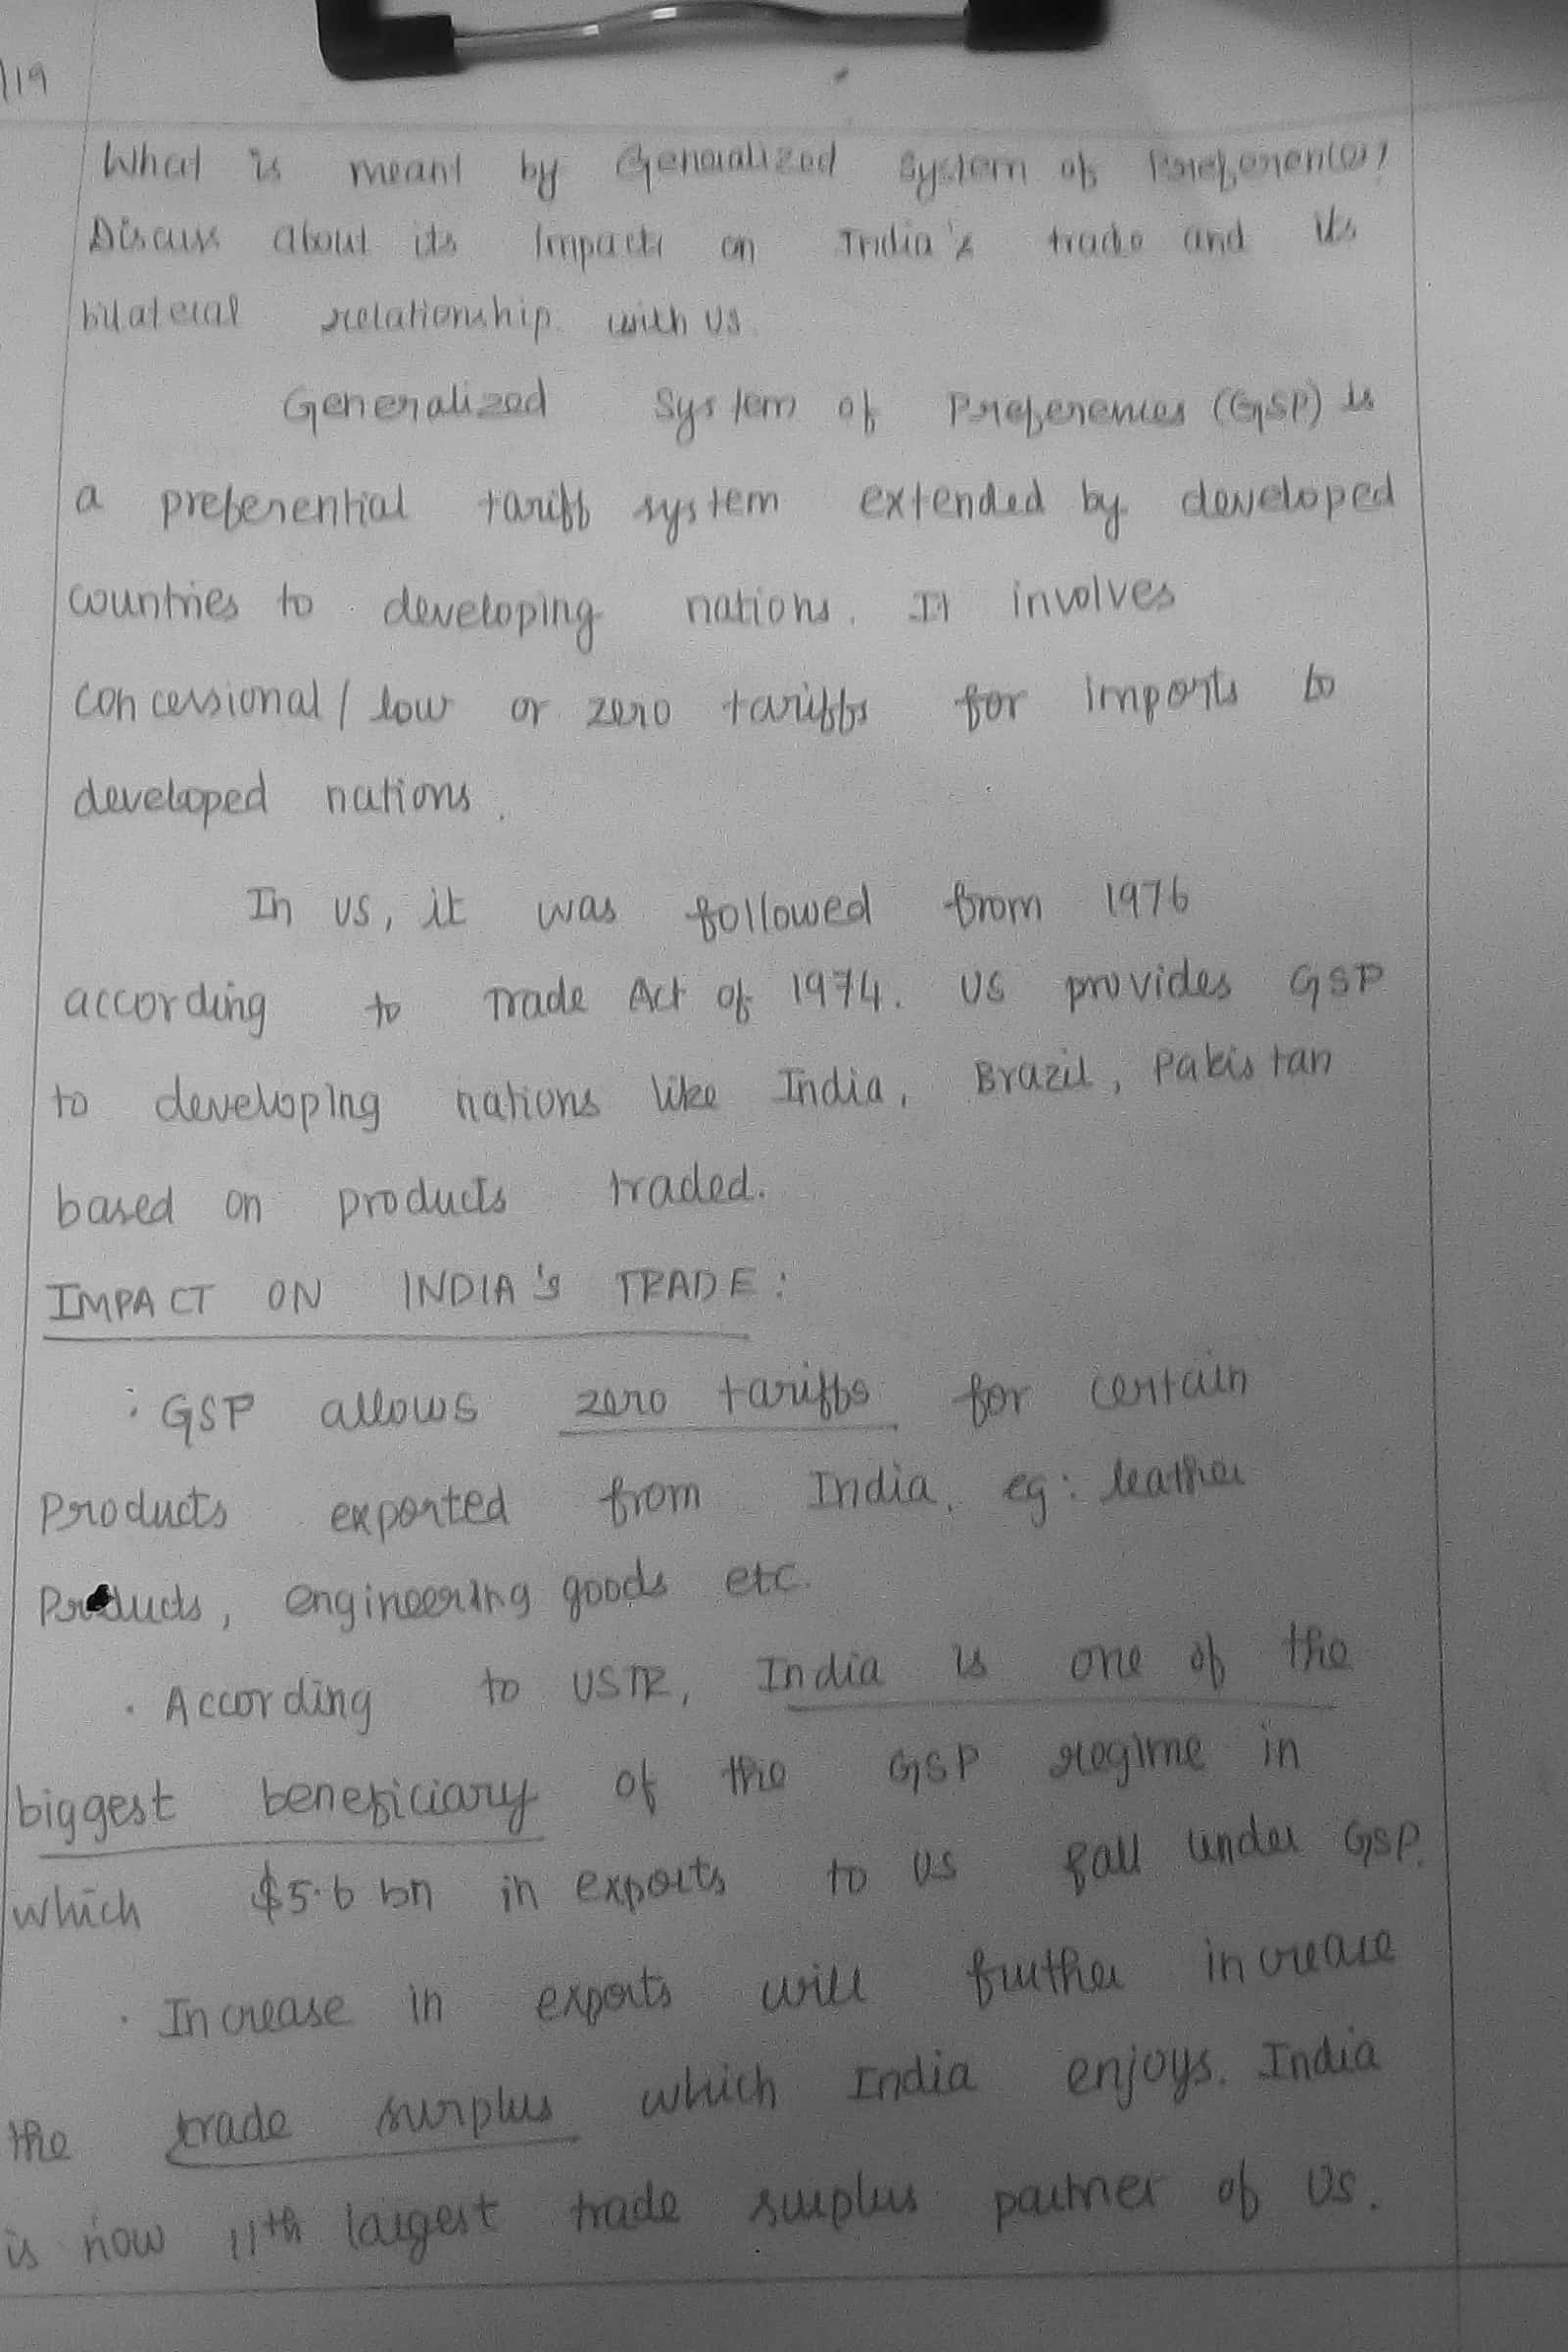 /19
What is meant by Generalized System of Preferences?
Discuss about its Impacts on India's trade and its
bilateral relationship with US.
Generalized System of Preferences (GSP) is
a preferential tariff system extended by developed
countries to developing nations. It involves
concessional / low or zero tariffs for imports to
developed nations.
In US, it was followed from 1976
according to Trade Act of 1974. US provides GSP
to developing nations like India, Brazil, Pakistan
based on products traded.
IMPACT ON INDIA's TRADE:
· GSP allows zero tariffs for certain
Products exported from India, eg: leather
Products, engineering goods etc.
· According to USTR, India is one of the
biggest beneficiary of the GSP regime in
which $5.6 bn in exports to US fall under GSP.
· Increase in exports will further increase
the trade surplus which India enjoys. India
is now 11th largest trade surplus partner of US.